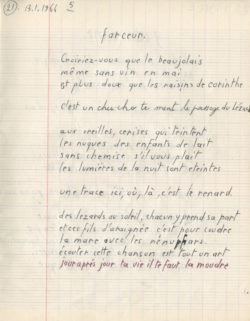 (21) 13.1.1966 5
farceur.
Croiriez-vous que le beaujolais
même sans vin en mai
est plus doux que les raisins de corinthe
c'est un chercher te ment le passage du lézard
aux oreilles, cerises qui teintent
les nuques des enfants de lait
sans chemise s'il vous plait
les lumières de la nuit sont éteintes
une trace ici, où, là, c'est le renard.
des lezards au soleil, chacun y prend sa part
et ces fils d'araignée c'est pour coudre
la mare avec les nénuphars.
écouter cette chanson est tout un art
jour après jour ta vie il te faut la moudre